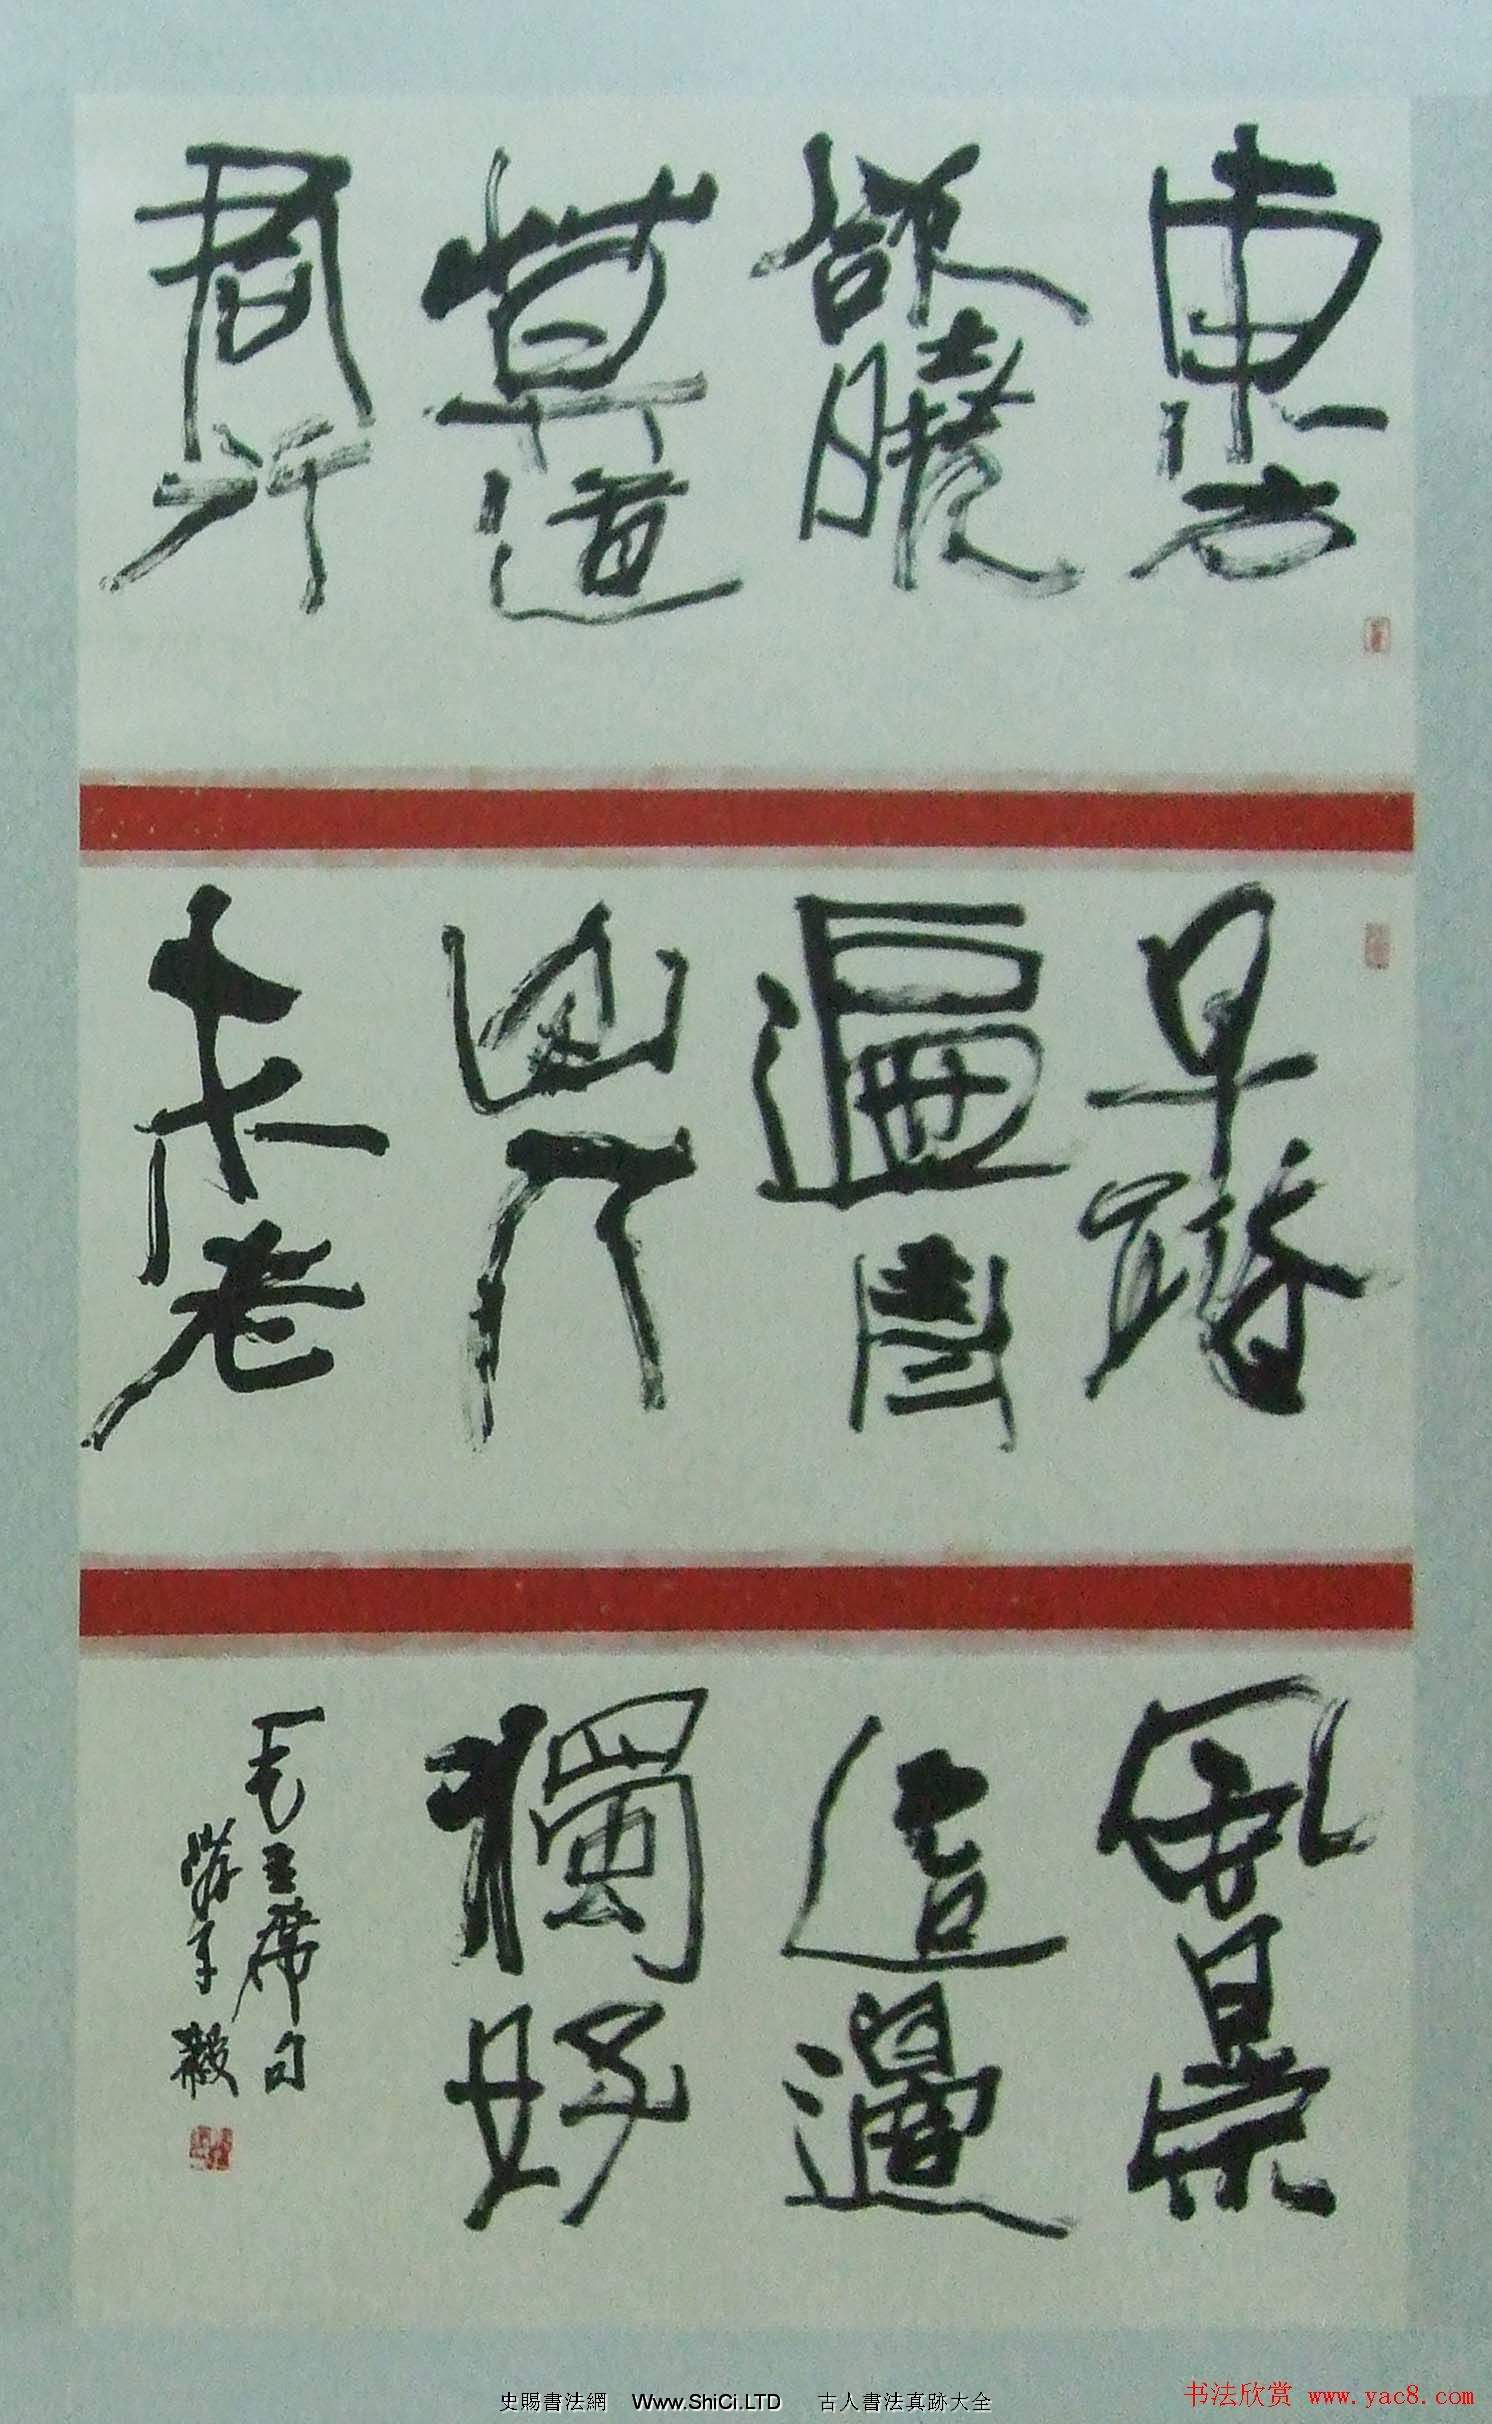 東方
欲曉
莫道
君行
早踏
遍青
山人
未老
風景
這邊
獨好
毛主席句
毅
史賜書法網 Www.ShiCi.LTD 古人書法真跡大全
书法欣赏 www.yac8.com